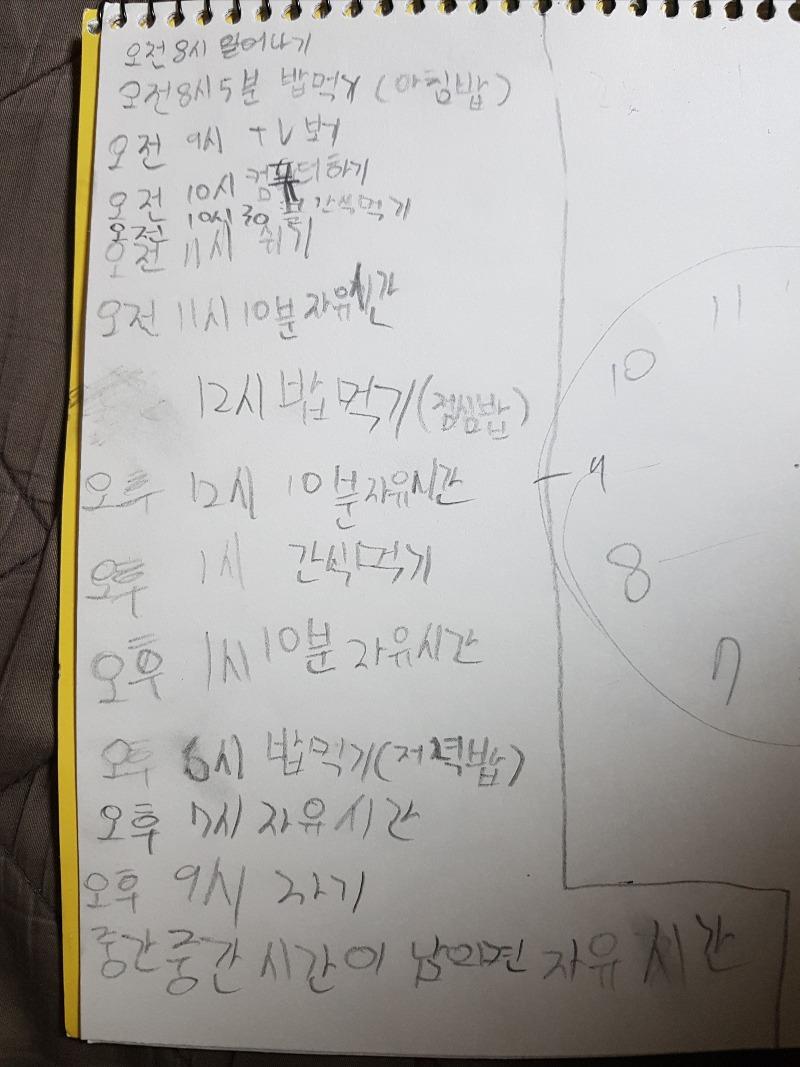 오전 8시 일어나기
오전 8시 5분 밥먹기 (아침밥)
오전 9시 TV 보기
오전 10시 컴퓨터하기
오전 10시 30분 간식먹기
오전 11시 쉬기
오전 11시 10분 자유시간
12시 밥먹기(점심밥)
오후 12시 10분 자유시간
오후 1시 간식먹기
오후 1시 10분 자유시간
오후 6시 밥먹기(저녁밥)
오후 7시 자유시간
오후 9시 자기
중간중간 시간이 남으면 자유시간
11
10
9
8
7